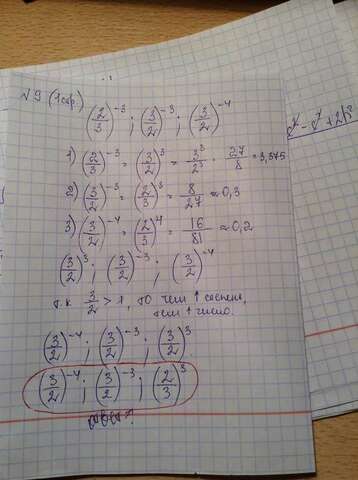 №9 (1стр.)
(2/3)^-3 ; (3/2)^-3 ; (3/2)^-4
1) (2/3)^-3 = (3/2)^3 = 3^3/2^3 = 27/8 = 3,375
2) (3/2)^-3 = (2/3)^3 = 8/27 ≈ 0,3
3) (3/2)^-4 = (2/3)^4 = 16/81 ≈ 0,2
(3/2)^3 ; (3/2)^-3 ; (3/2)^-4
т.к 3/2 > 1, то чем ↑ степень,
тем ↑ число.
(3/2)^-4 ; (3/2)^-3 ; (3/2)^3
(3/2)^-4 ; (3/2)^-3 ; (2/3)^3